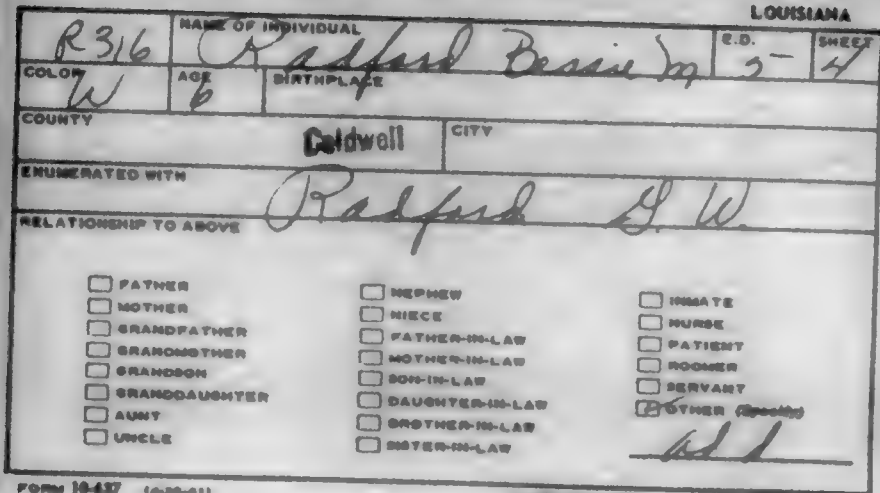 LOUISIANA
R316 NAME OF INDIVIDUAL Radford Bessie M E.D. 5 SHEET 4
COLOR W AGE 6 BIRTHPLACE
COUNTY Caldwell CITY
ENUMERATED WITH Radford G. W.
RELATIONSHIP TO ABOVE
FATHER
MOTHER
GRANDFATHER
GRANDMOTHER
GRANDSON
GRANDDAUGHTER
AUNT
UNCLE
NEPHEW
NIECE
FATHER-IN-LAW
MOTHER-IN-LAW
SON-IN-LAW
DAUGHTER-IN-LAW
BROTHER-IN-LAW
SISTER-IN-LAW
INMATE
NURSE
PATIENT
ROOMER
SERVANT
OTHER (Specify)
ad d
FORM 10-637